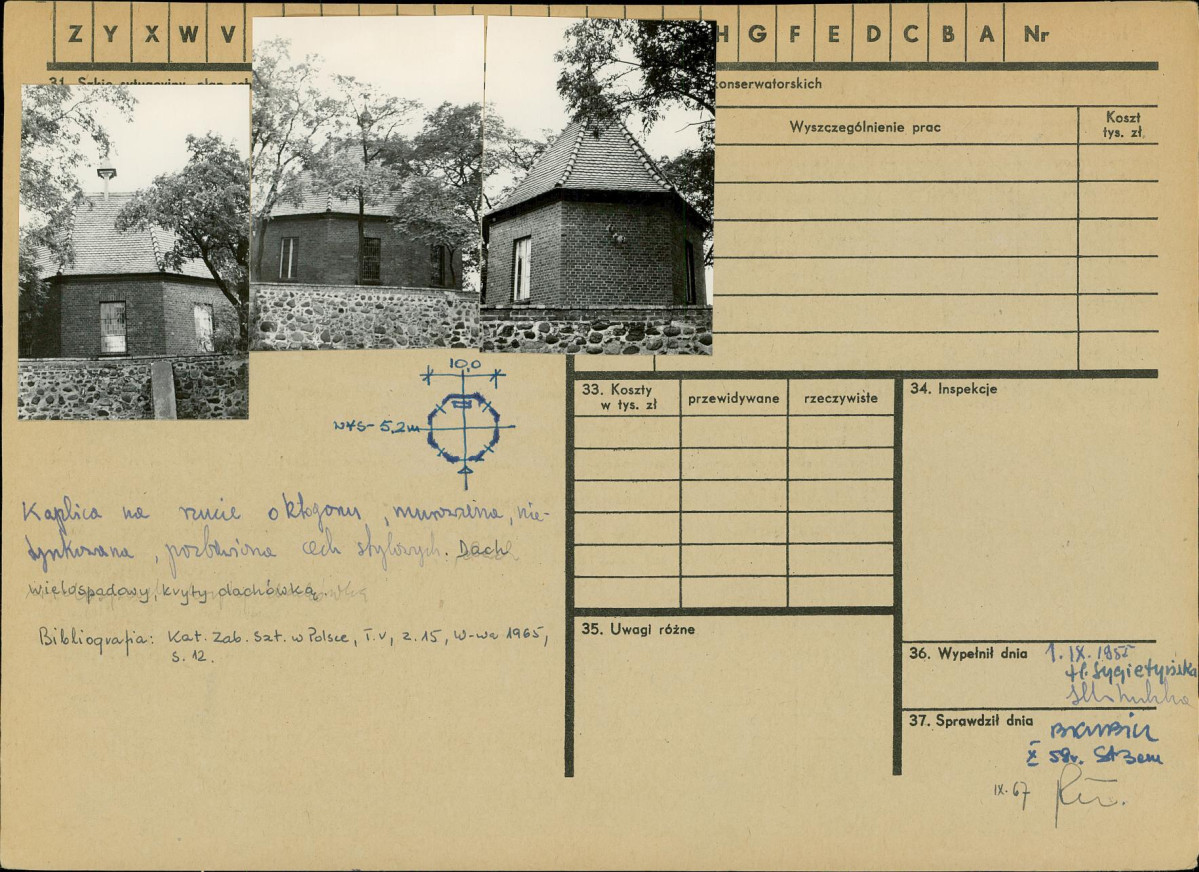 Z Y X W V H G F E D C B A Nr
31. Szkic sytuacyjny, plan
konserwatorskich
Wyszczególnienie prac
Koszt
tys. zł.
10,0
wys - 5,2m
33. Koszty
w tys. zł
przewidywane
rzeczywiste
34. Inspekcje
Kaplica na rzucie oktogonu, murowana, nie-
tynkowana, pozbawiona cech stylowych. Dach
wielospadowy, kryty dachówką.
Bibliografia: Kat. Zab. Szt. w Polsce, T. V, z. 15, W-wa 1965,
S. 12.
35. Uwagi różne
36. Wypełnił dnia
1. IX. 195
H. Sygietyńska
37. Sprawdził dnia
X 59r.
IX. 67